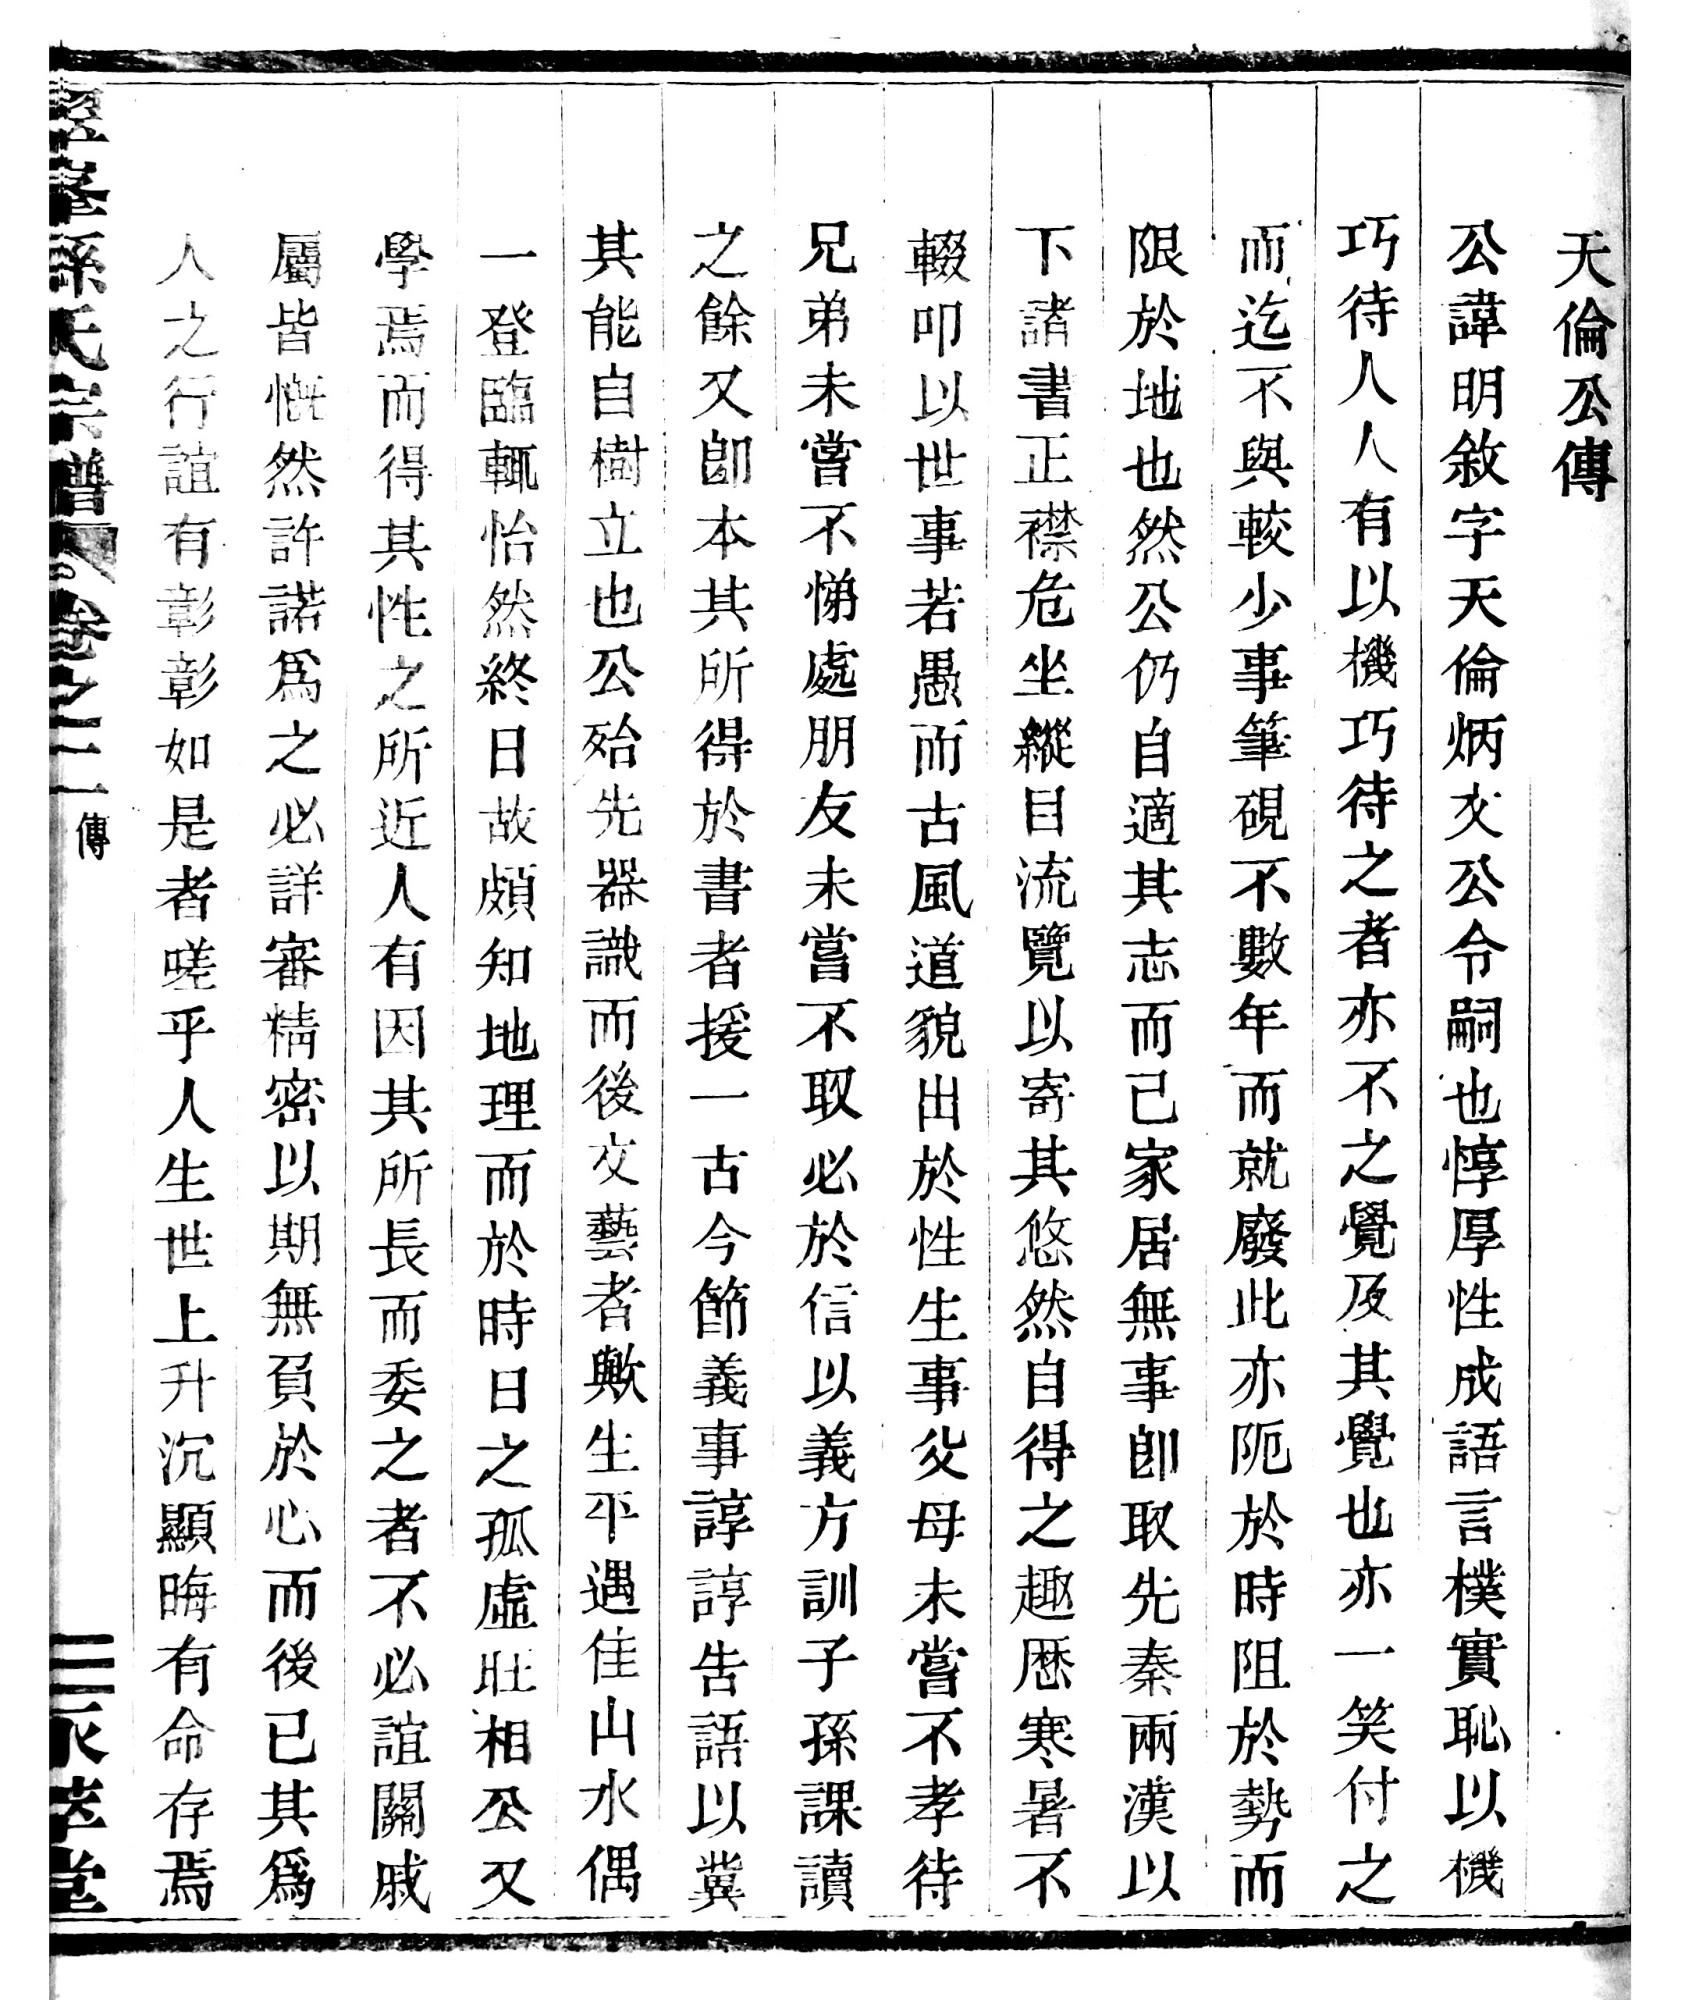 天倫公傳
公諱明敘字天倫炳文公令嗣也惇厚性成語言樸實恥以機
巧待人人有以機巧待之者亦不之覺及其覺也亦一笑付之
而迄不與較少事筆硯不數年而就廢此亦阨於時阻於勢而
限於地也然公仍自適其志而已家居無事卽取先秦兩漢以
下諸書正襟危坐縱目流覽以寄其悠然自得之趣歷寒暑不
輟叩以世事若愚而古風道貌出於性生事父母未嘗不孝待
兄弟未嘗不悌處朋友未嘗不取必於信以義方訓子孫課讀
之餘又卽本其所得於書者援一古今節義事諄諄告語以冀
其能自樹立也公殆先器識而後文藝者歟生平遇佳山水偶
一登臨輒怡然終日故頗知地理而於時日之孤虛旺相公又
學焉而得其性之所近人有因其所長而委之者不必誼關戚
屬皆慨然許諾爲之必詳審精密以期無負於心而後已其爲
人之行誼有彰彰如是者嗟乎人生世上升沉顯晦有命存焉
孫氏宗譜 卷之二 傳 三 萃堂